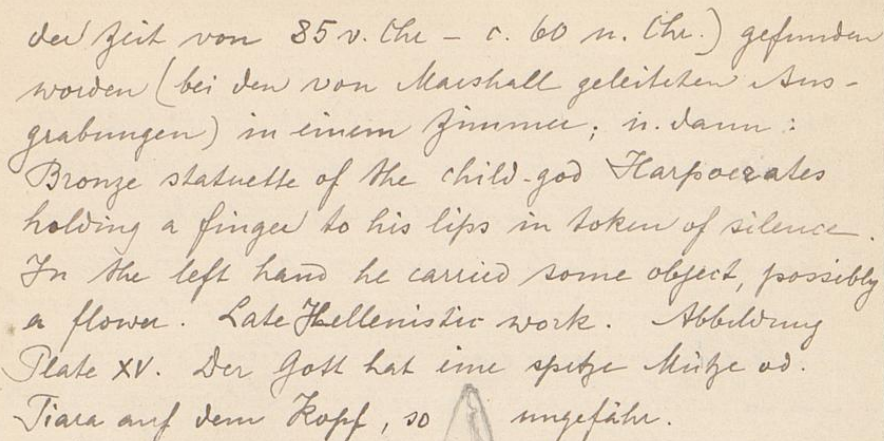 der Zeit von 85 v. Chr – c. 60 n. Chr.) gefunden
worden (bei den von Marshall geleiteten Aus-
grabungen) in einem Zimmer; u. dann:
Bronze statuette of the child-god Harpocrates
holding a finger to his lips in token of silence.
In the left hand he carried some object, possibly
a flower. Late Hellenistic work. Abbildung
Plate XV. Der Gott hat eine spitze Mütze od.
Tiara auf dem Kopf, so ungefähr.